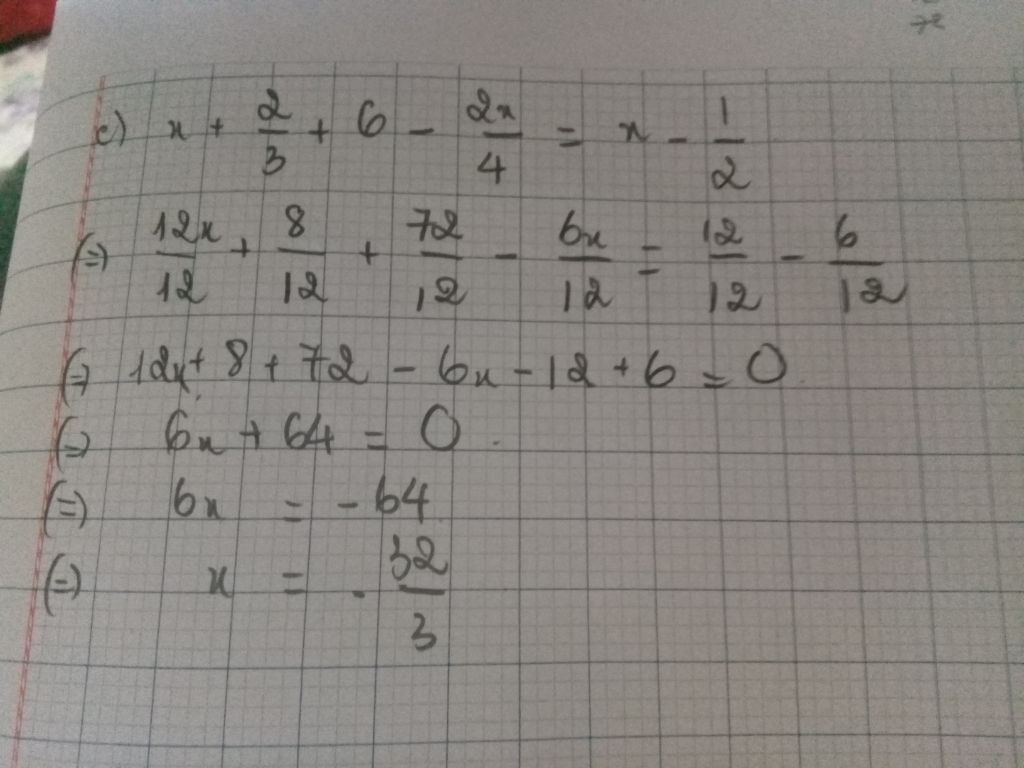 c) x + 2/3 + 6 - 2x/4 = x - 1/2
(=) 12x/12 + 8/12 + 72/12 - 6x/12 = 12/12 - 6/12
(=) 12x + 8 + 72 - 6x - 12 + 6 = 0
(=) 6x + 64 = 0
(=) 6x = - 64
(=) x = - 32/3